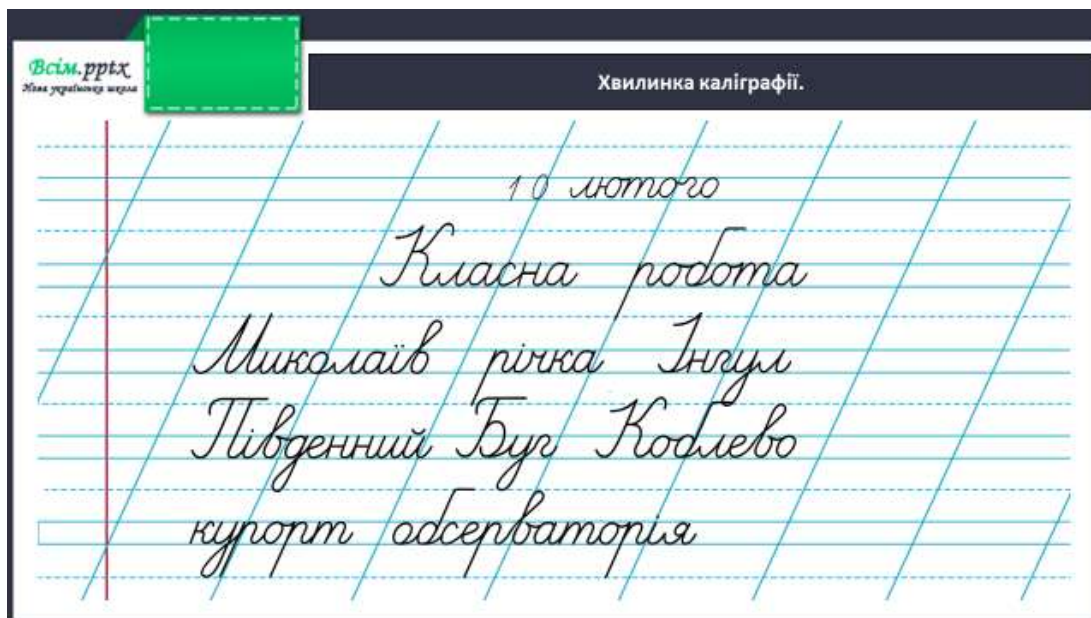 Всім.pptx
Нова українська школа
Хвилинка каліграфії.
10 лютого
Класна робота
Миколаїв річка Інгул
Південний Буг Коблево
курорт обсерваторія